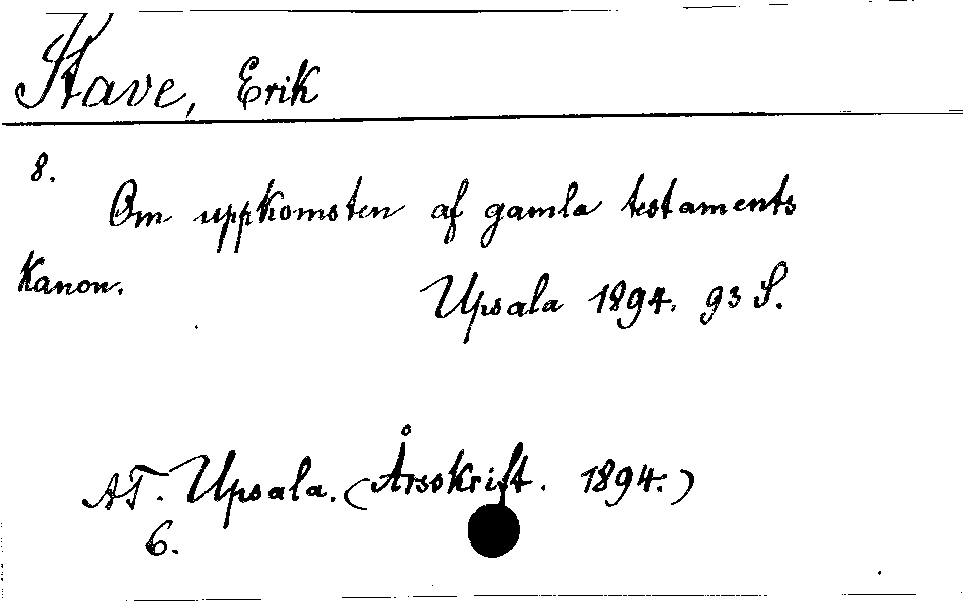 Stave, Erik
8.
Om uppkomsten af gamla testaments
Kanon.
Upsala 1894. 93 S.
AT. Upsala. (Årsskrift. 1894.)
6.